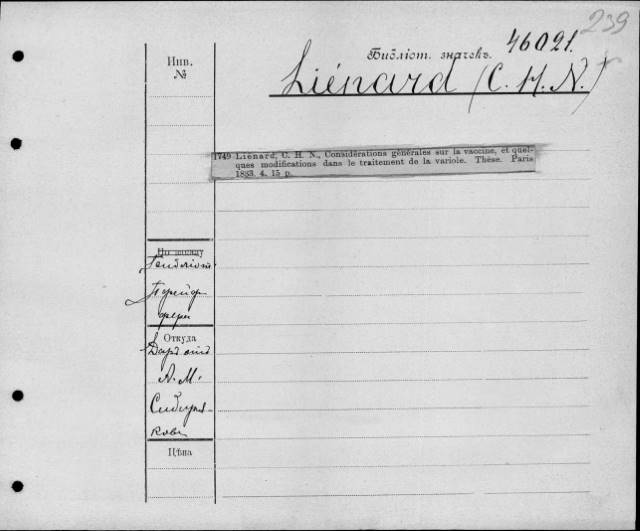 239
Библіот. значекъ. 46021.
Инв.
№
Liénard (C. H. N.)
1749 Liénard, C. H. N., Considérations générales sur la vaccine, et quel-
ques modifications dans le traitement de la variole. Thèse. Paris
1833. 4. 15 p.
По какому
Библіот.
Пфейф
фера
Откуда
Даръ отъ
А. М.
Сибиря-
кова
Цѣна